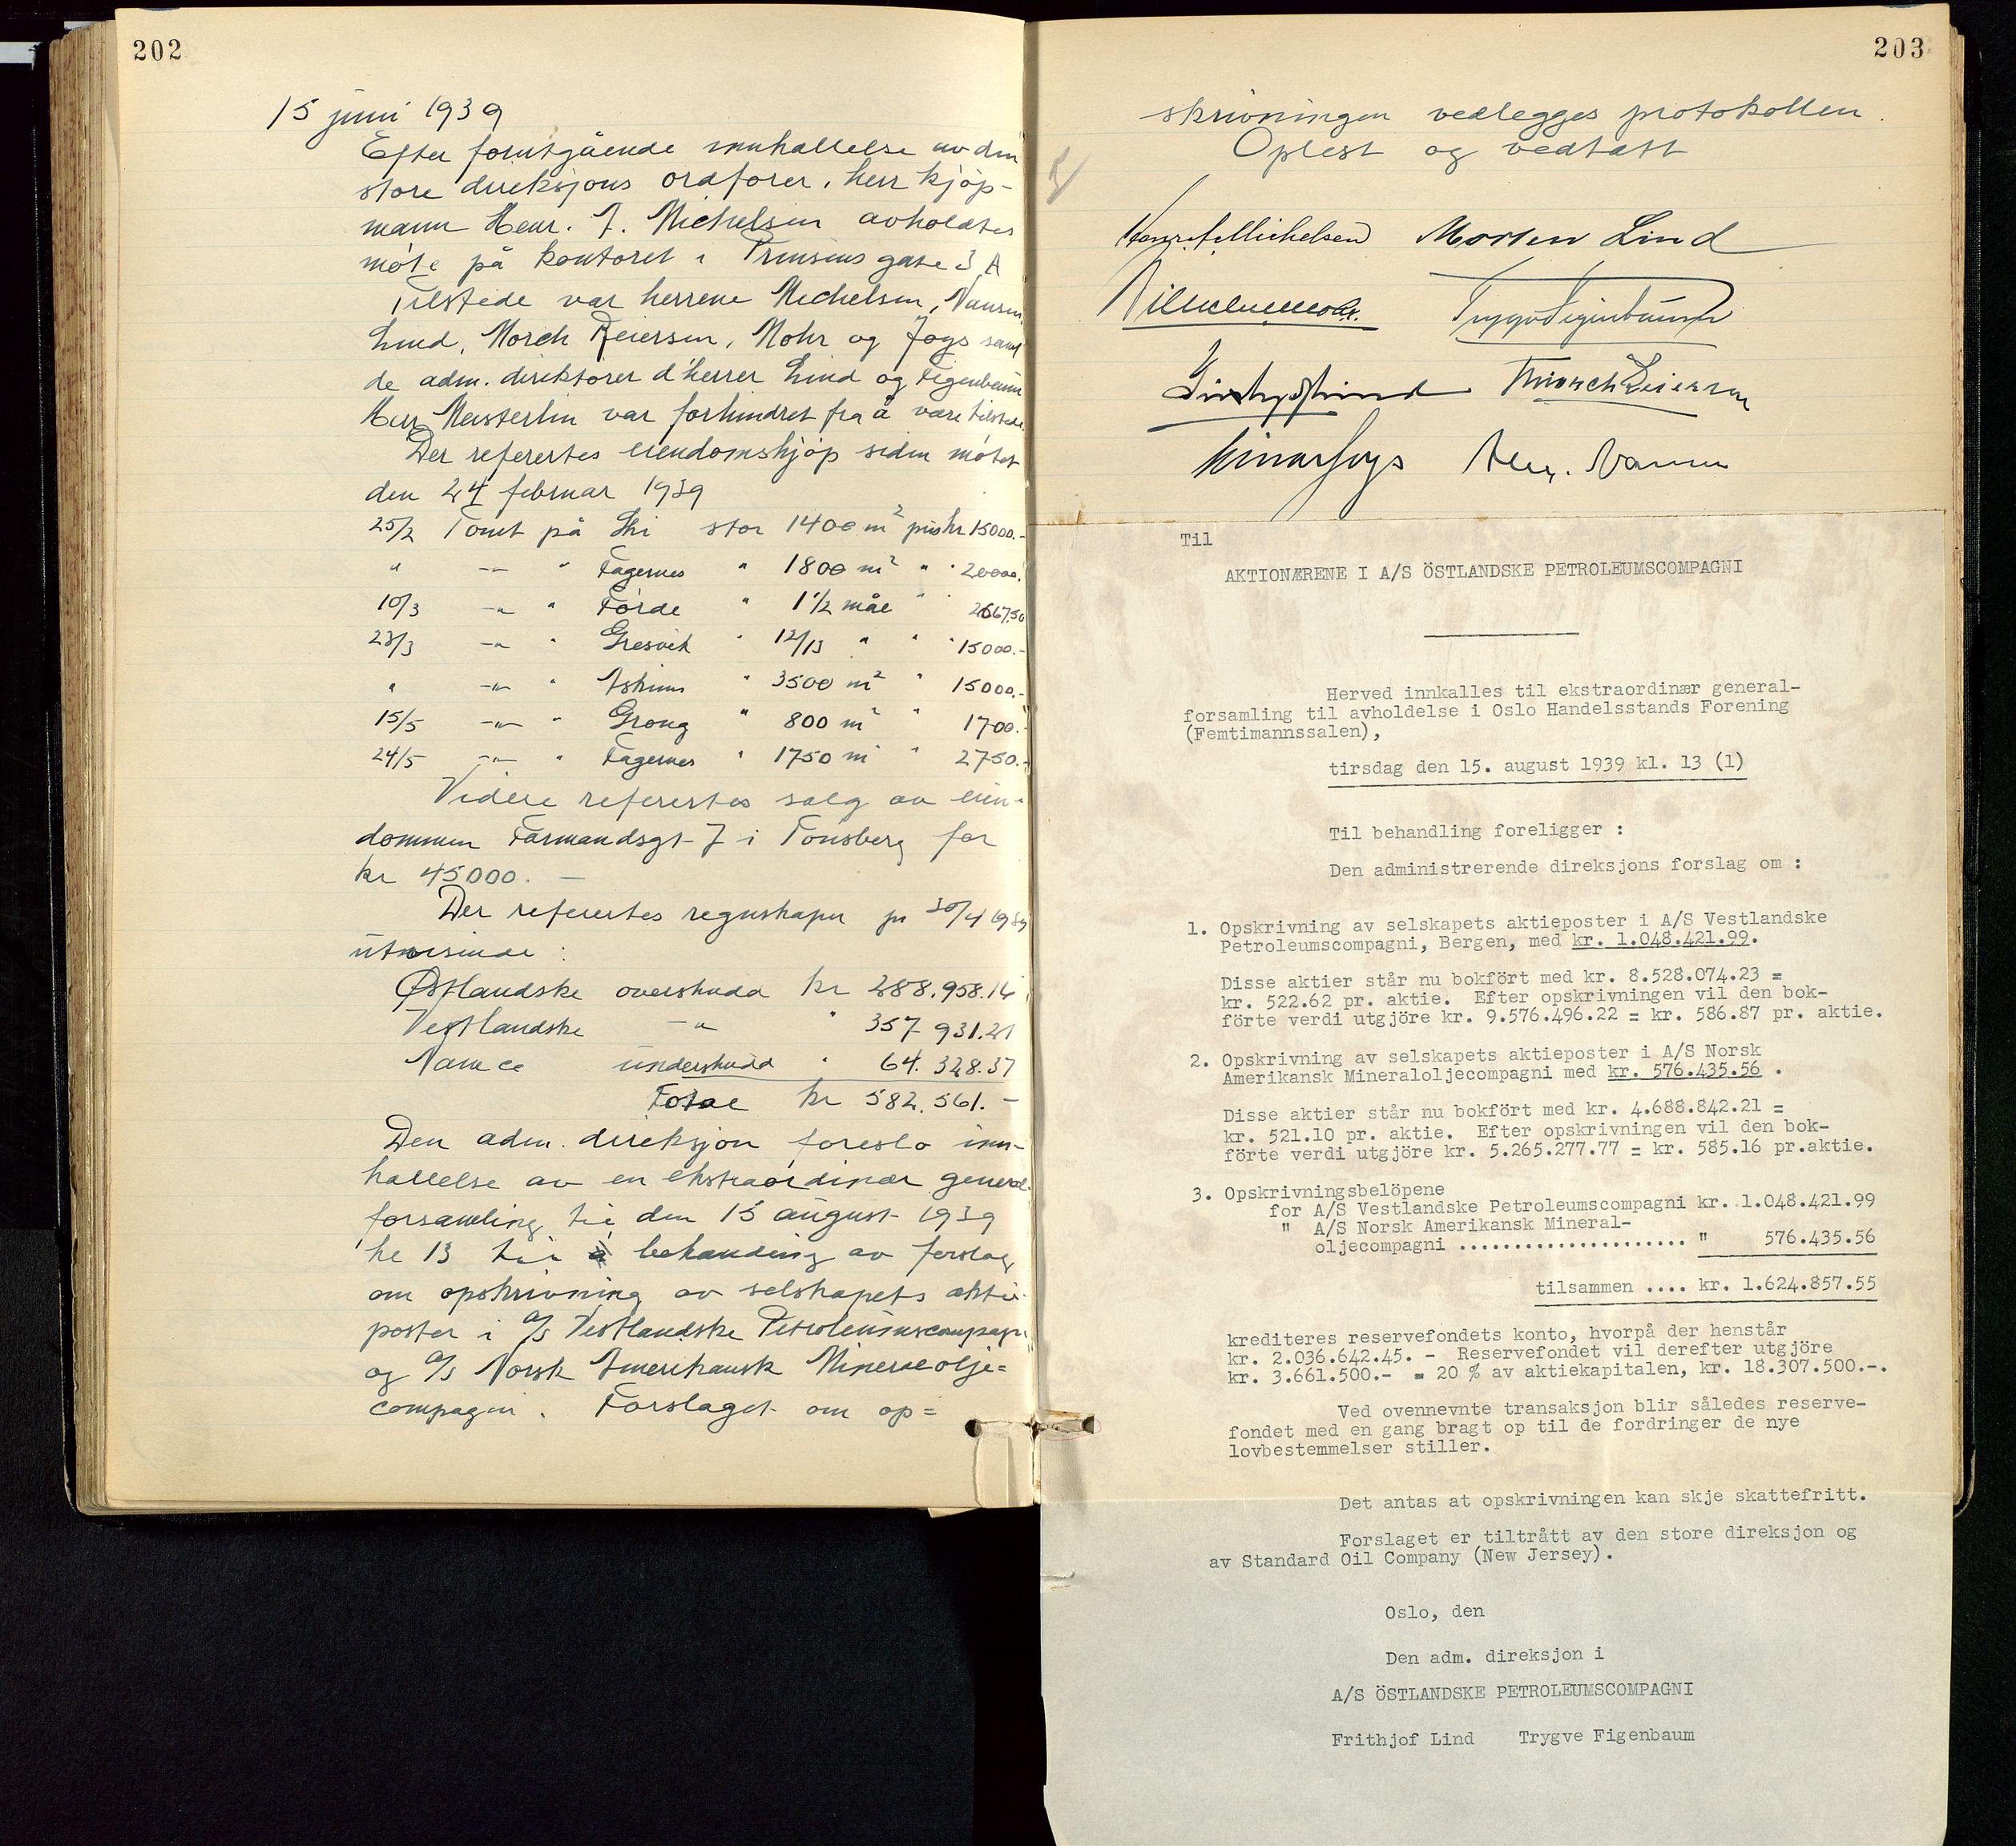 202
15 juni 1939
Efter forutgående innkallelse av den
store direksjons ordfører, herr kjøp-
mann Henr. J. Michelsen avholdtes
møte på kontoret i Prinsens gate 3 A
Tilstede var herrene Michelsen, Nansen,
Lind, Morch Reiersen, Mohr og Joys samt
de adm. direktører d'herrer Lind og Figenbaum
Herr Musterlin var forhindret fra å være tilstede.
Der refertes eiendomskjøp siden møtet
den 24 februar 1939
25/2 Tomt på Ski stor 1400 m² pris kr 15000.-
" -"- " Fagernes " 1800 m² " " 20000.
10/3 -"- " Førde " 1 1/2 mål " 2667.50
23/3 -"- " Gresvik " 12/13 " " " 15000.-
" -"- " Askim " 3500 m² " 15000.-
15/5 -"- " Grong " 800 m² " 1700.-
24/5 -"- " Fagernes " 1750 m² " 2750.-
Videre refertes salg av eien-
dommen Farmandsgt 7 i Tønsberg for
kr 45000. -
Der refertes regnskaper pr 30/4 1939
utvisende :
Østlandske overskudd kr 288.958.16
Vestlandske -"- " 357 931.21
Namco underskudd " 64. 328.37
Total kr 582.561. -
Den adm. direksjon foreslo inn-
kallelse av en ekstraordinær general-
forsamling til den 15 august 1939
kl 13 til behandling av forslag
om opskrivning av selskapets aktie-
poster i A/S Vestlandske Petroleumscompagni
og A/S Norsk Amerikansk Mineralolje=
compagni. Forslaget om op=
203
skrivningen vedlegges protokollen.
Oplest og vedtatt
Henr. J. Michelsen Morten Lind
Wilhelm Mohr. Trygve Figenbaum
Frithjof Lind Th Morch Reiersen
Einar Joys Alex. Nansen
Til
AKTIONÆRENE I A/S ÖSTLANDSKE PETROLEUMSCOMPAGNI
Herved innkalles til ekstraordinær general-
forsamling til avholdelse i Oslo Handelsstands Forening
(Femtimannssalen),
tirsdag den 15. august 1939 kl. 13 (1)
Til behandling foreligger :
Den administrerende direksjons forslag om :
1. Opskrivning av selskapets aktieposter i A/S Vestlandske
Petroleumscompagni, Bergen, med kr. 1.048.421.99.
Disse aktier står nu bokfört med kr. 8.528.074.23 =
kr. 522.62 pr. aktie. Efter opskrivningen vil den bok-
förte verdi utgjöre kr. 9.576.496.22 = kr. 586.87 pr. aktie.
2. Opskrivning av selskapets aktieposter i A/S Norsk
Amerikansk Mineraloljecompagni med kr. 576.435.56 .
Disse aktier står nu bokfört med kr. 4.688.842.21 =
kr. 521.10 pr. aktie. Efter opskrivningen vil den bok-
förte verdi utgjöre kr. 5.265.277.77 = kr. 585.16 pr.aktie.
3. Opskrivningsbelöpene
for A/S Vestlandske Petroleumscompagni kr. 1.048.421.99
" A/S Norsk Amerikansk Mineral-
oljecompagni ..................... " 576.435.56
tilsammen .... kr. 1.624.857.55
krediteres reservefondets konto, hvorpå der henstår
kr. 2.036.642.45. - Reservefondet vil derefter utgjöre
kr. 3.661.500.- = 20 % av aktiekapitalen, kr. 18.307.500.-.
Ved ovennevnte transaksjon blir således reserve-
fondet med en gang bragt op til de fordringer de nye
lovbestemmelser stiller.
Det antas at opskrivningen kan skje skattefritt.
Forslaget er tiltrått av den store direksjon og
av Standard Oil Company (New Jersey).
Oslo, den
Den adm. direksjon i
A/S ÖSTLANDSKE PETROLEUMSCOMPAGNI
Frithjof Lind Trygve Figenbaum